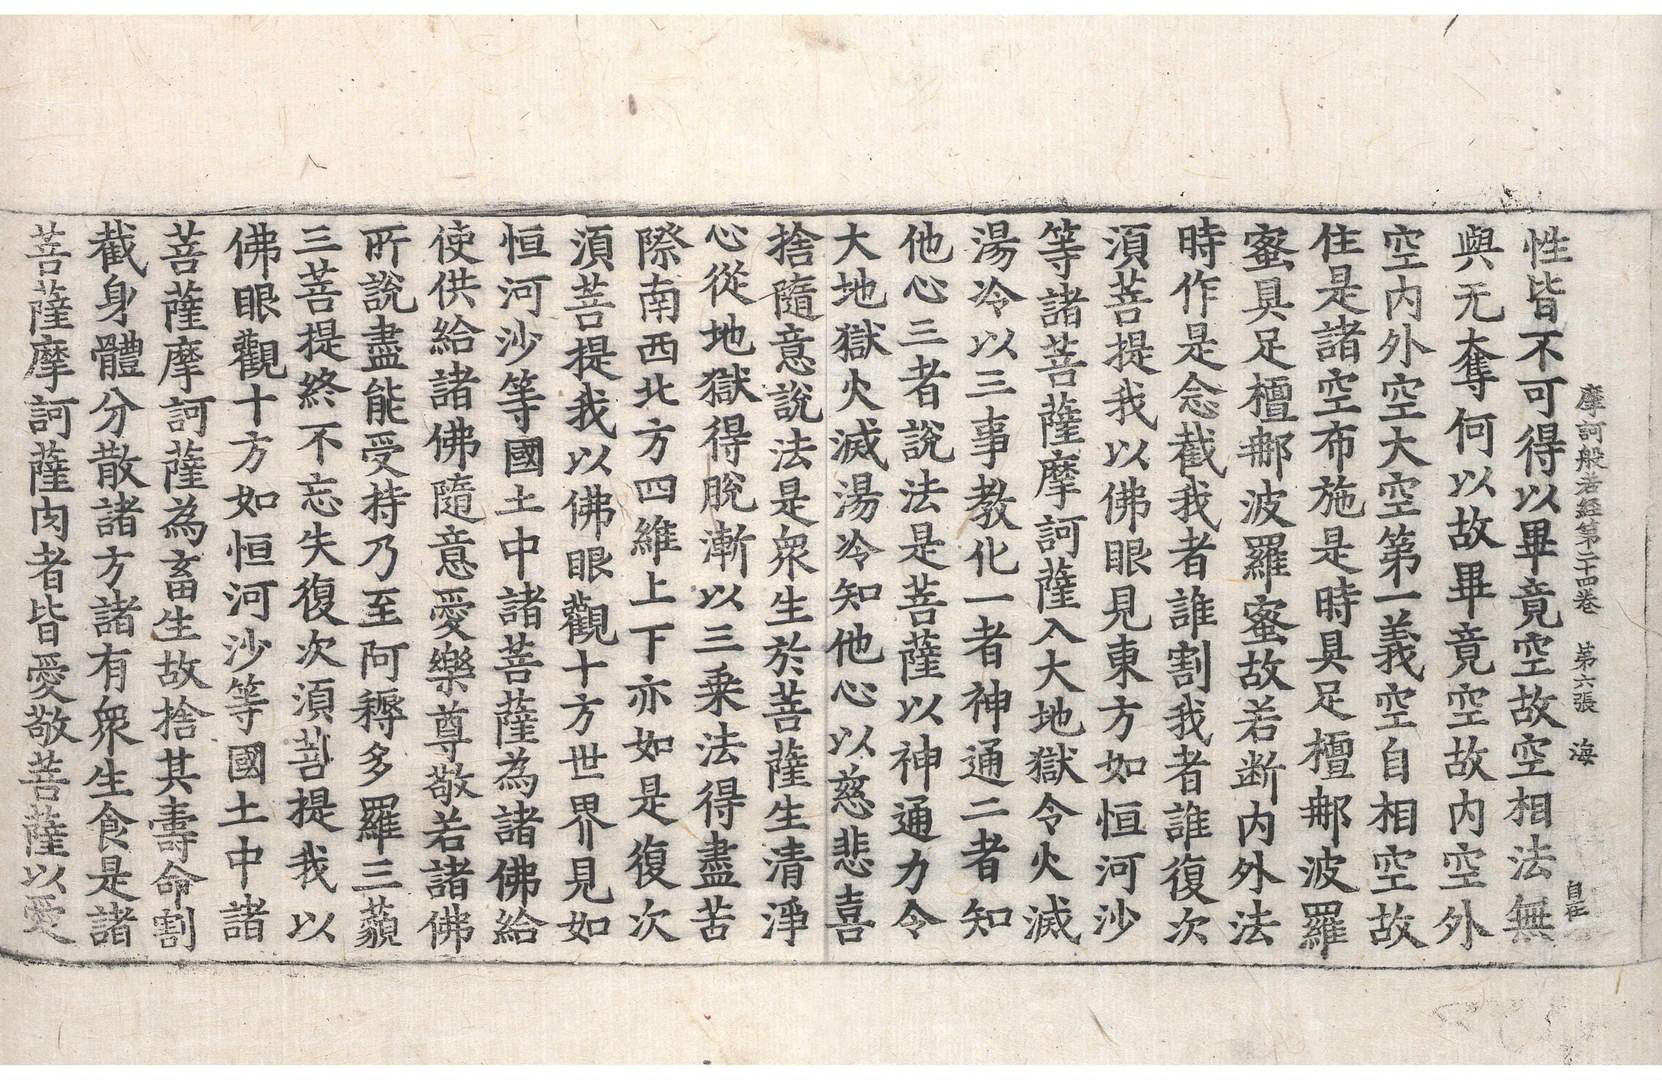 摩訶般若經第二十四卷　第六張　海
性皆不可得以畢竟空故空相法無
與无奪何以故畢竟空故内空外
空内外空大空第一義空自相空故
住是諸空布施是時具足檀𨚗波羅
蜜具足檀𨚗波羅蜜故若断内外法
時作是念截我者誰割我者誰復次
湏菩提我以佛眼見東方如恒河沙
等諸菩薩摩訶薩入大地獄令火滅
湯冷以三事教化一者神通二者知
他心三者說法是菩薩以神通力令
大地獄火滅湯冷知他心以慈悲喜
捨隨意說法是衆生於菩薩生清淨
心從地獄得脫漸以三乗法得盡苦
際南西北方四維上下亦如是復次
湏菩提我以佛眼觀十方世界見如
恒河沙等國土中諸菩薩為諸佛給
使供給諸佛隨意愛樂尊敬若諸佛
所說盡能受持乃至阿耨多羅三藐
三菩提終不忘失復次湏菩提我以
佛眼觀十方如恒河沙等國土中諸
菩薩摩訶薩為畜生故捨其壽命割
截身體分散諸方諸有衆生食是諸
菩薩摩訶薩肉者皆愛敬菩薩以愛